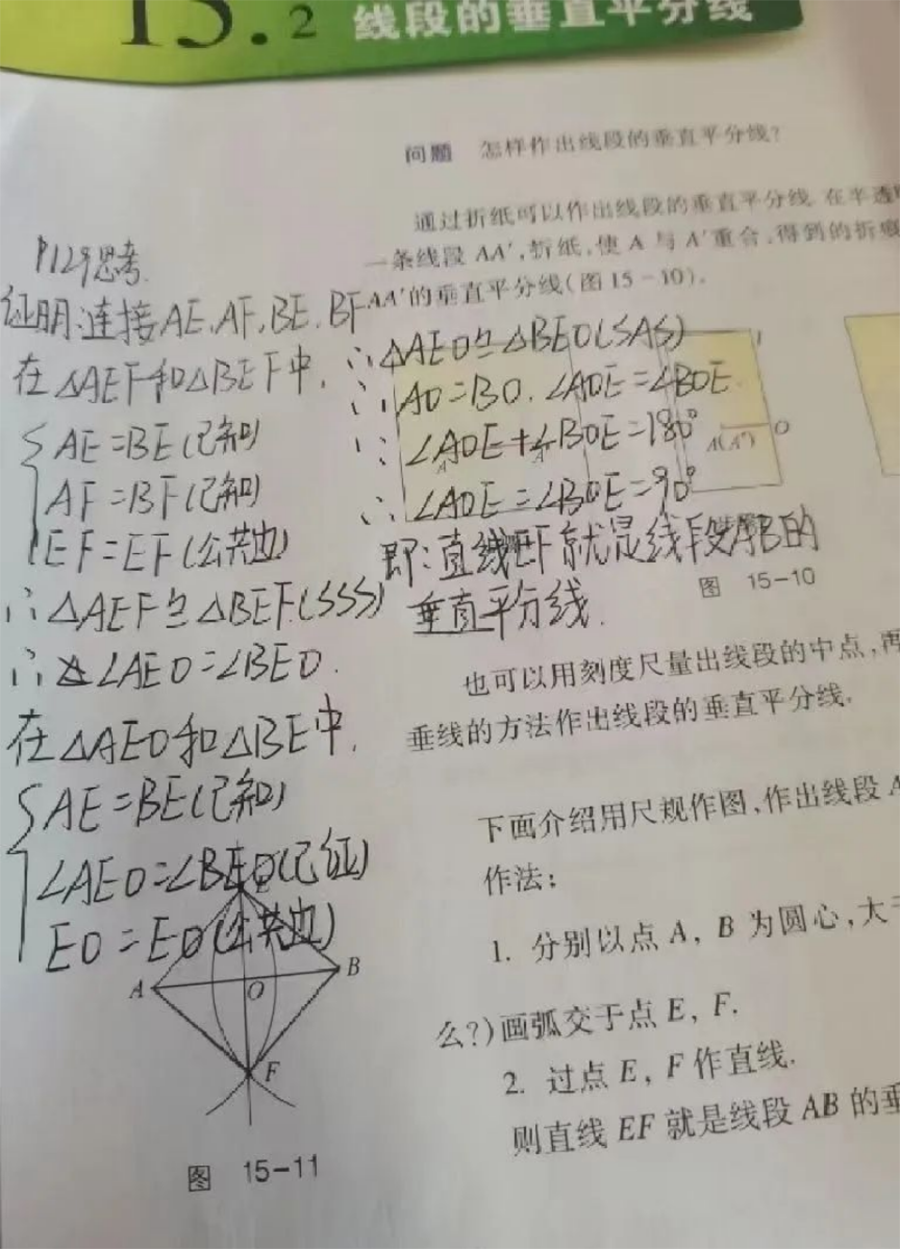 15.2 线段的垂直平分线
问题 怎样作出线段的垂直平分线?
通过折纸可以作出线段的垂直平分线.在半透
一条线段 AA′,折纸,使 A 与 A′重合,得到的折痕
AA′的垂直平分线(图 15-10).
P129思考.
证明:连接AE.AF.BE.BF
在△AEF和△BEF中.
AE=BE(已知)
AF=BF(已知)
EF=EF(公共边)
∴△AEF≌△BEF(SSS)
∴∠AEO=∠BEO.
在△AEO和△BE中.
AE=BE(已知)
∠AEO=∠BEO(已证)
EO=EO(公共边)
∴△AEO≌△BEO(SAS)
∴AO=BO.∠AOE=∠BOE.
∵∠AOE+∠BOE=180°
∴∠AOE=∠BOE=90°
即:直线EF就是线段AB的
垂直平分线.
A(A′) O
图 15-10
也可以用刻度尺量出线段的中点,再
垂线的方法作出线段的垂直平分线.
下面介绍用尺规作图,作出线段 A
作法:
1. 分别以点 A, B 为圆心,大于
么?)画弧交于点 E, F.
2. 过点 E, F 作直线.
则直线 EF 就是线段 AB 的垂
E
A O B
F
图 15-11